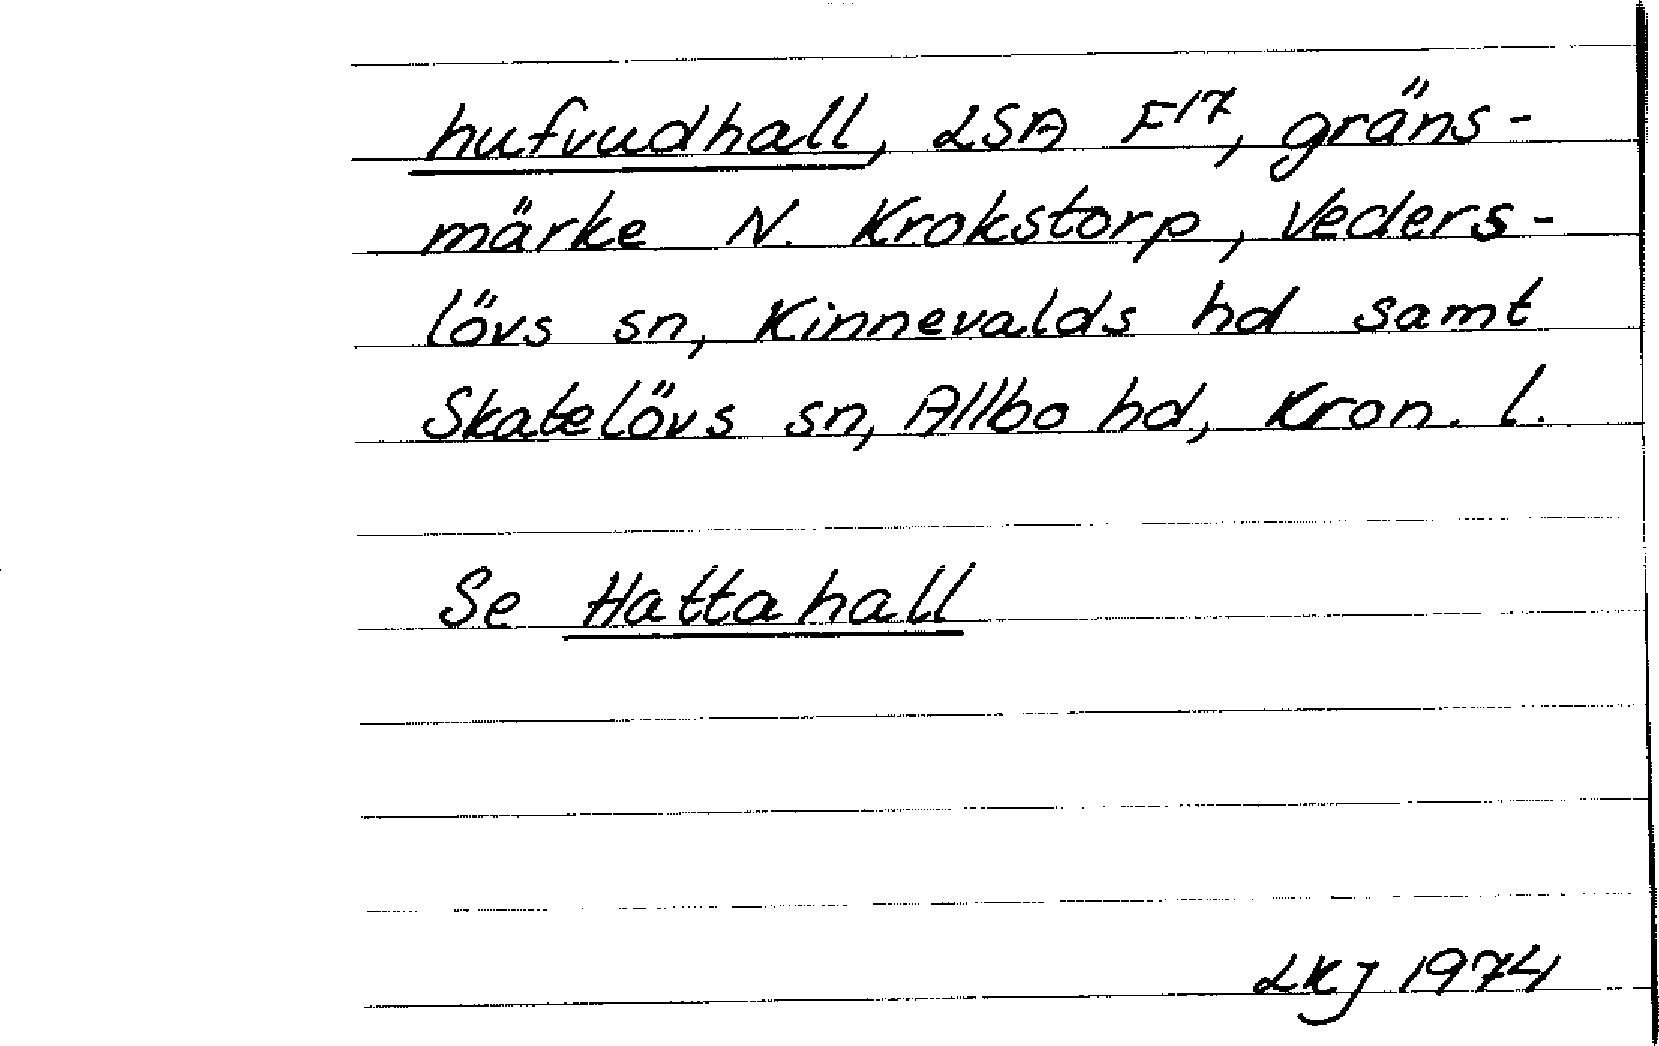 hufvudhall, LSA F17, gräns-
märke N. Krokstorp, Veders-
lövs sn, Kinnevalds hd samt
Skatelövs sn, Allbo hd, Kron. l.
Se Hattahall
LKJ 1974